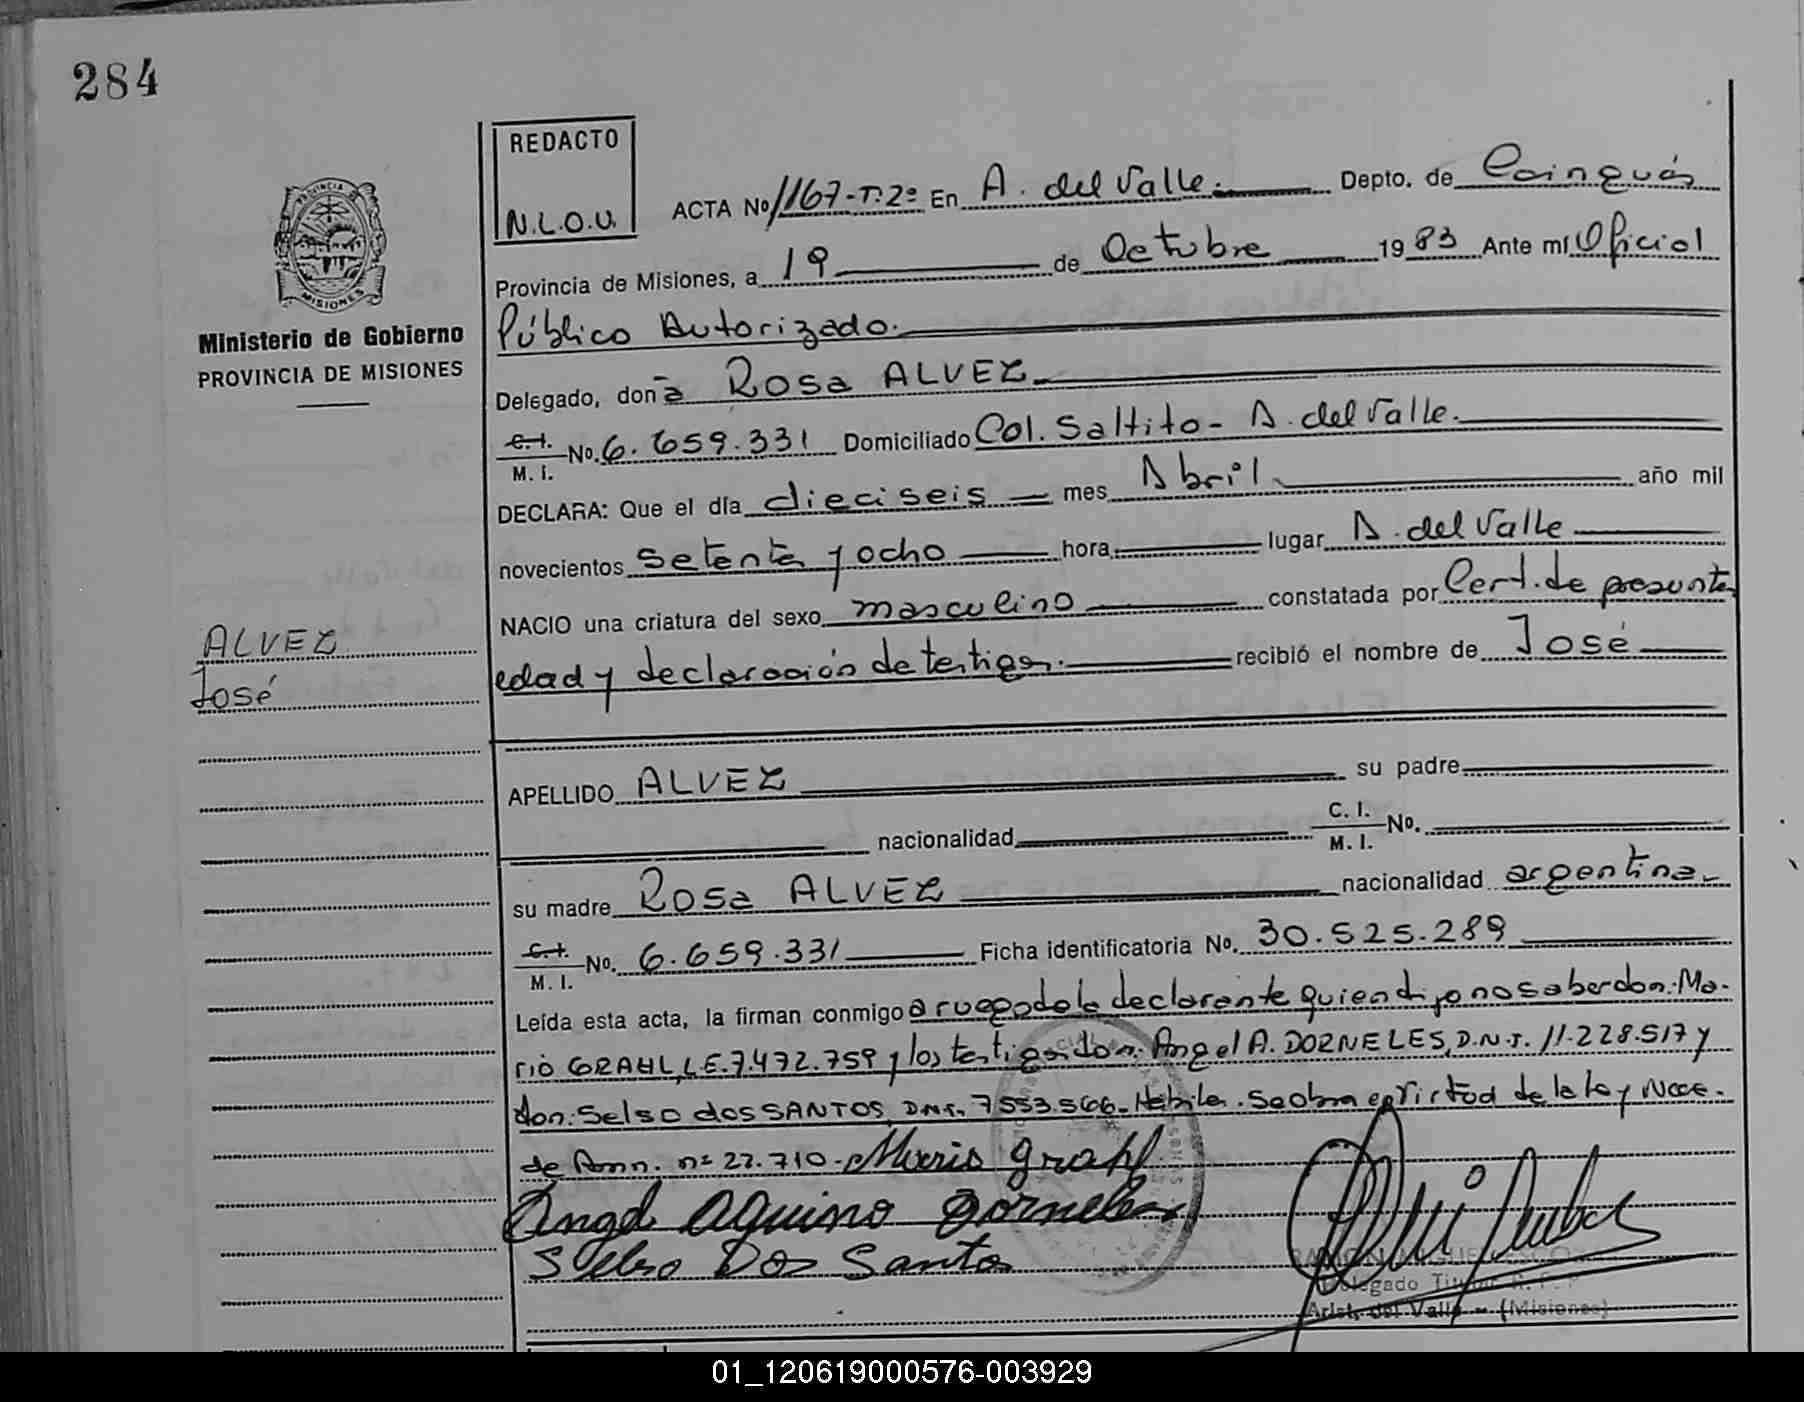 284
REDACTO
N.L.O.U.
PROVINCIA DE
MISIONES
Ministerio de Gobierno
PROVINCIA DE MISIONES
ACTA No 1167-T:2º En A. del Valle. Depto. de Cainguás
Provincia de Misiones, a 19 de Octubre 1983 Ante mí Oficial
Público Autorizado.
Delegado, doña Rosa ALVEZ
C.I.
M. I. No. 6.659.331 Domiciliado Col. Saltito - A. del Valle.
DECLARA: Que el día dieciseis mes Abril año mil
novecientos setenta y ocho hora lugar A. del Valle
NACIO una criatura del sexo masculino constatada por Cert. de presunta
edad y declaración de testigos. recibió el nombre de José
ALVEZ
José
APELLIDO ALVEZ su padre
nacionalidad C. I.
M. I. No.
su madre Rosa ALVEZ nacionalidad argentina
C.I.
M. I. No. 6.659.331 Ficha identificatoria No. 30.525.289
Leída esta acta, la firman conmigo a ruego de la declarante quien dijo no saber don: Ma-
rio GRAHL, L.E. 7.472.759 y los testigos don: Angel A. DORNELES, D.N.I. 11.228.517 y
don: Selso dos SANTOS, D.N.I. 7.553.566- Habiles. Se obra en virtud de la ley Nac.
de Amn. nº 22.710.- Mario Grahl
Angel Aquino Dorneles
Selso Dos Santos
RAMON MIGUEL ESCO
Delegado Titular R.
Arist. del Valle - (Misiones)
01_120619000576-003929